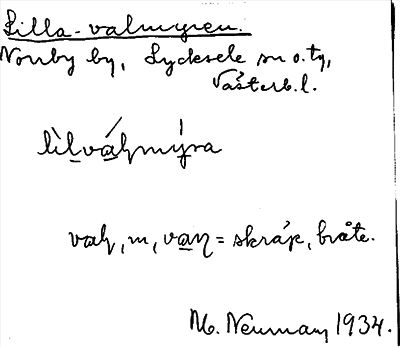 Lilla-valmyren.
Norrby by, Lycksele sn o. tg,
Västerb. l.
lìlváḷmýra
vaḷ, m, vaṇ = skräp, bråte.
M. Neuman 1934.